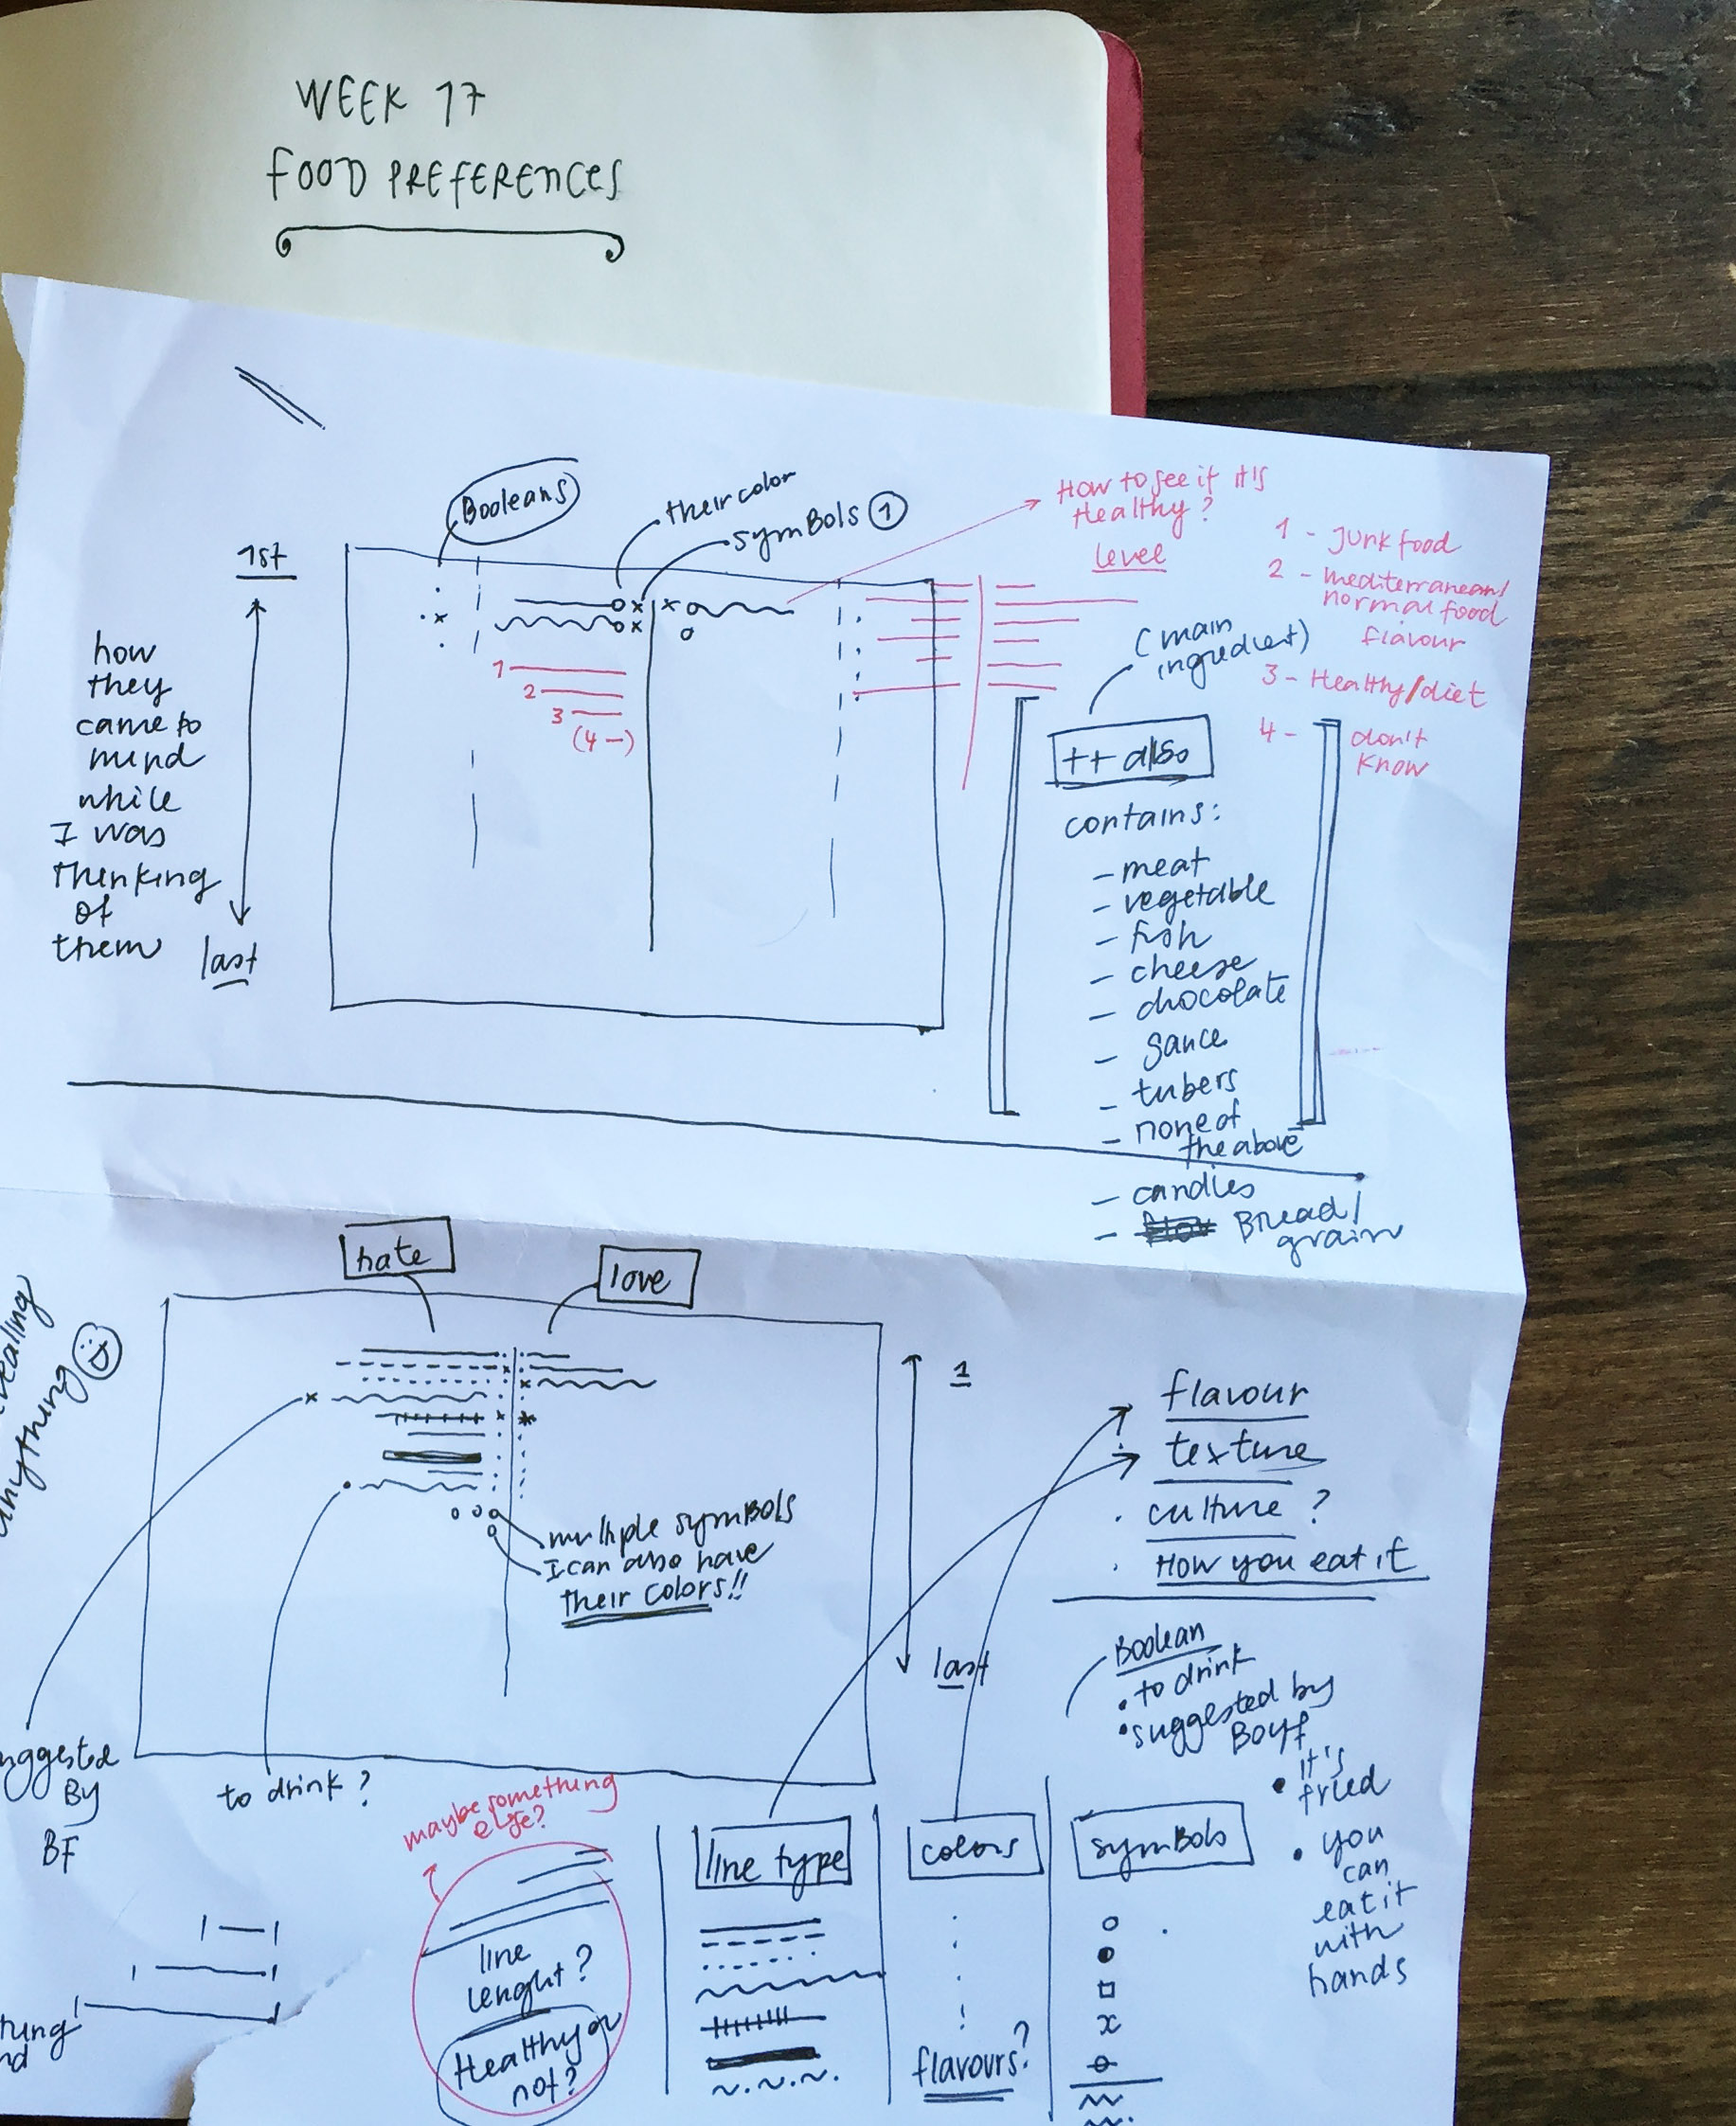 WEEK 17
FOOD PREFERENCES
Booleans
their color
symBols 1
1st
how
they
came to
mind
while
I was
thinking
of
them
last
1
2
3
(4 —)
How to see if it's
Healthy?
level
1 - Junk food
2 - mediterranean/
normal food
flavour
3 - Healthy/diet
4 - don't
know
(main
ingredient)
++ also
contains:
- meat
- vegetable
- fish
- cheese
- chocolate
- sauce
- tubers
- none of
the above
- candles
- Bread/
grain
hate
love
anything
multiple symBols
I can also have
their colors!!
1
last
flavour
texture
culture ?
How you eat it
Boolean
• to drink
• suggested by
Boyf
• it's
fried
• you
can
eat it
with
hands
By
BF
to drink?
maybe something
else?
line
lenght?
Healthy or
not?
line type
colors
flavours?
symBols